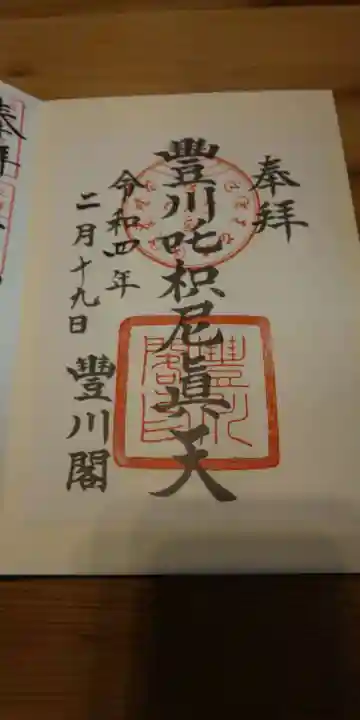 奉拜
豐川吒枳尼眞天
令和四年
二月十九日
豐川閣
豐川
閣印
奉拜